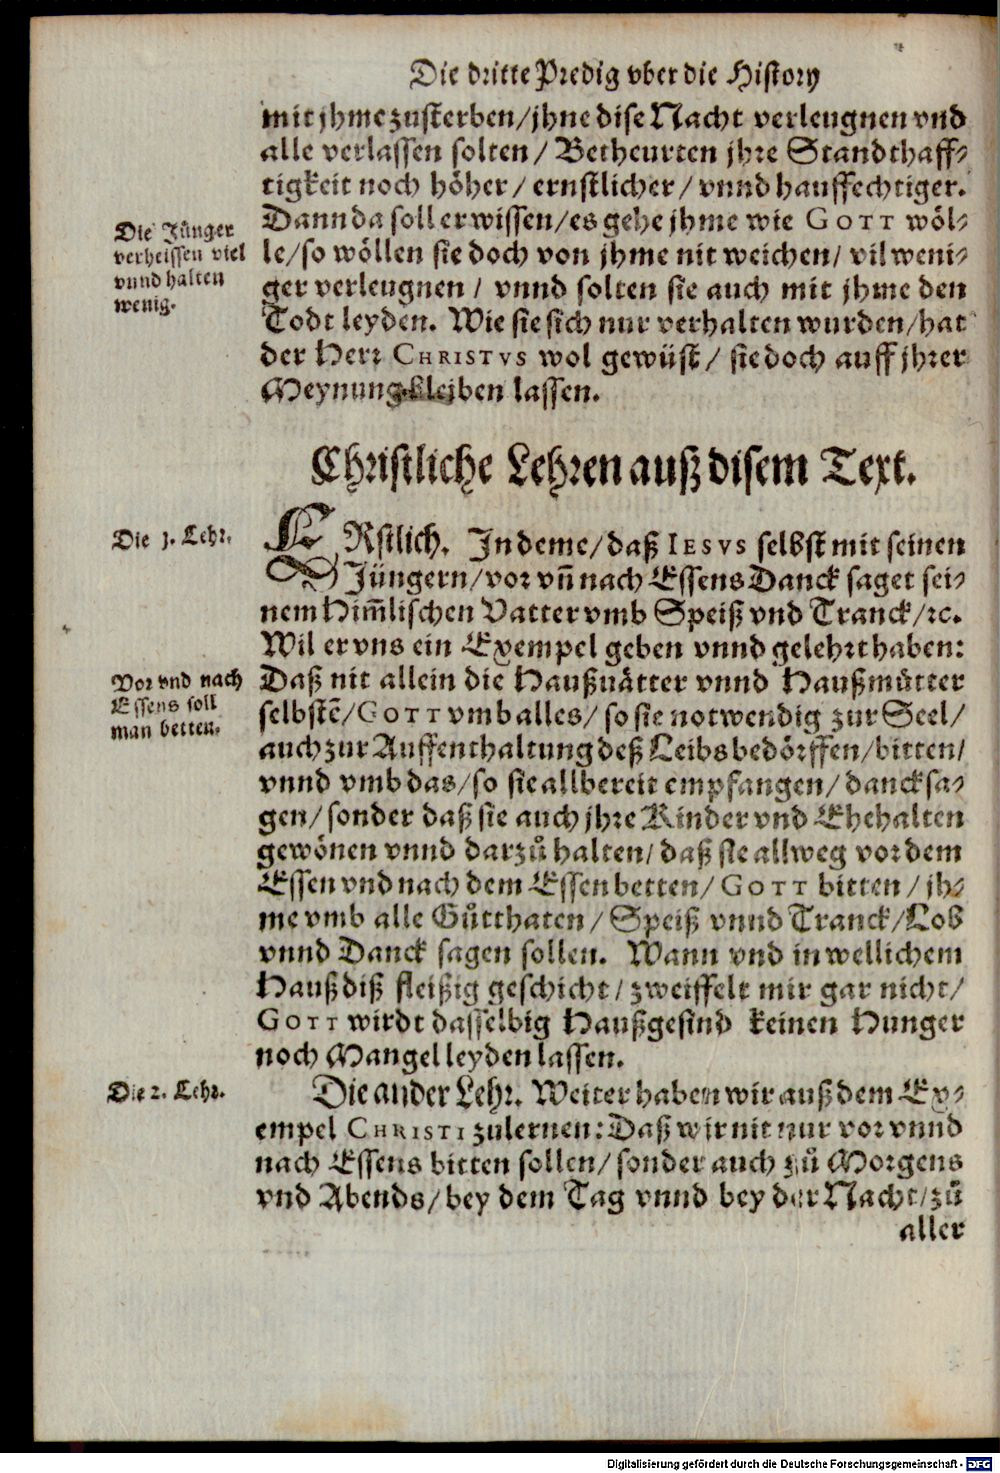 Die dritte Predig vber die History
mit jhme zusterben/ jhne dise Nacht verleugnen vnd
alle verlassen solten/ Betheurten jhre Standthaff-
tigkeit noch höher/ ernstlicher/ vnnd hauffechtiger.
Dann da soll er wissen/ es gehe jhme wie GOTT wöl-
le/ so wöllen sie doch von jhme nit weichen/ vil weni-
ger verleugnen/ vnnd solten sie auch mit jhme den
Todt leyden. Wie sie sich nur verhalten wurden/ hat
der Herr CHRISTVS wol gewüst/ sie doch auff jhrer
Meynung bleiben lassen.
Die Jünger
verheissen viel
vnnd halten
wenig.
Christliche Lehren auß disem Text.
Die 1. Lehr.
ERstlich. In deme/ daß IESVS selbst mit seinen
Jüngern/ vor vñ nach Essens Danck saget sei-
nem Him̃lischen Vatter vmb Speiß vnd Tranck/ ꝛc.
Wil er vns ein Exempel geben vnnd gelehrt haben:
Vor vnd nach
Essens soll
man betten.
Daß nit allein die Haußuätter vnnd Haußmütter
selbstẽ/ GOTT vmb alles/ so sie notwendig zur Seel/
auch zur Auffenthaltung deß Leibs bedörffen/ bitten/
vnnd vmb das/ so sie allbereit empfangen/ dancksa-
gen/ sonder daß sie auch jhre Kinder vnd Ehehalten
gewönen vnnd darzů halten/ daß sie allweg vor dem
Essen vnd nach dem Essen betten/ GOTT bitten/ jh-
me vmb alle Gůtthaten/ Speiß vnnd Tranck/ Lob
vnnd Danck sagen sollen. Wann vnd in wellichem
Hauß diß fleißig geschicht/ zweiffelt mir gar nicht/
GOTT wirdt dasselbig Haußgesind keinen Hunger
noch Mangel leyden lassen.
Die 2. Lehr.
Die ander Lehr. Weiter haben wir auß dem Ex-
empel CHRISTI zulernen: Daß wir nit nur vor vnnd
nach Essens bitten sollen/ sonder auch zů Morgens
vnd Abends/ bey dem Tag vnnd bey der Nacht/ zů
aller
Digitalisierung gefördert durch die Deutsche Forschungsgemeinschaft - DFG